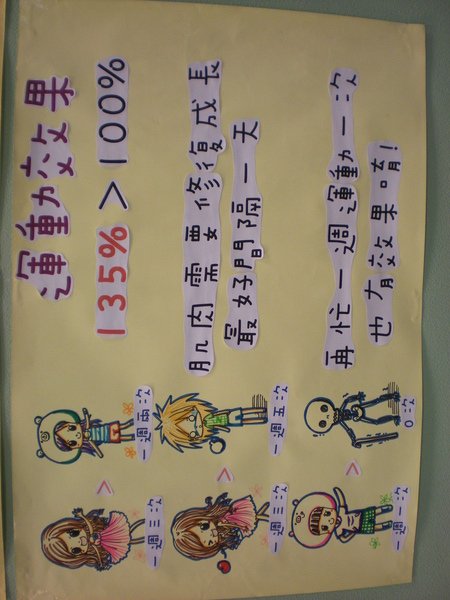 運動效果
135% > 100%
一週三次 > 一週兩次
肌肉需要修復成長
最好間隔一天
一週三次 > 一週五次
再忙一週運動一次
也有效果唷!
一週一次 > 0次